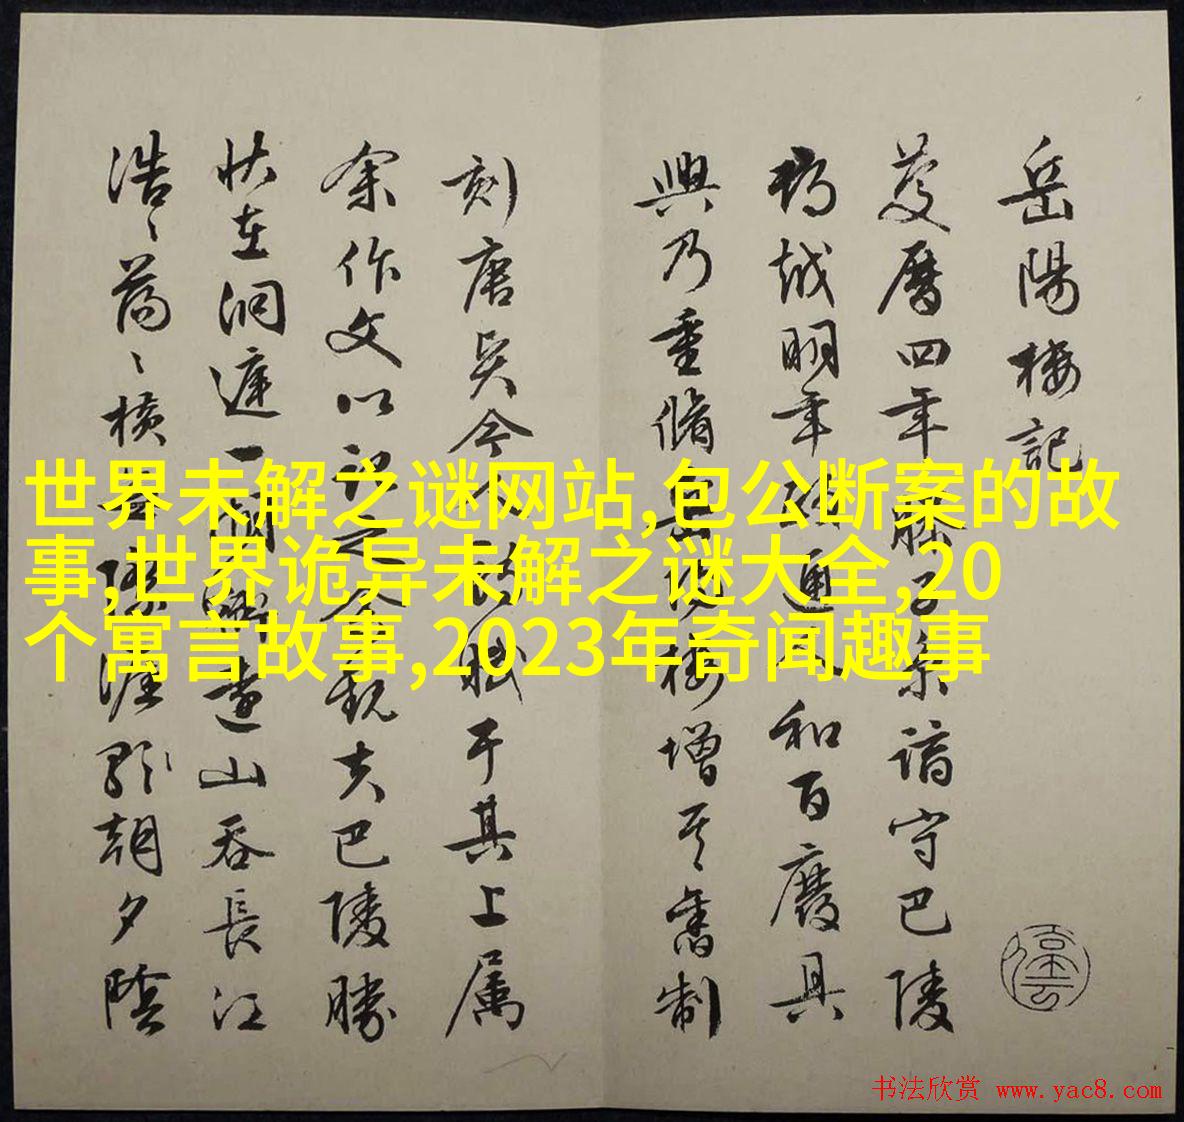 岳陽樓記
慶曆四年滕子京謫守巴陵
郡越明年政通人和百廢具
興乃重脩岳陽樓增其舊制
刻唐賢今人詩賦于其上属
余作文以記之余觀夫巴陵勝
狀在洞庭一湖銜遠山吞長江
浩〻蕩〻橫無際涯朝夕陰
世界未解之谜网站,包公断案的故
事,世界诡异未解之谜大全,20
个寓言故事,2023年奇闻趣事
书法欣赏 www.yac8.com